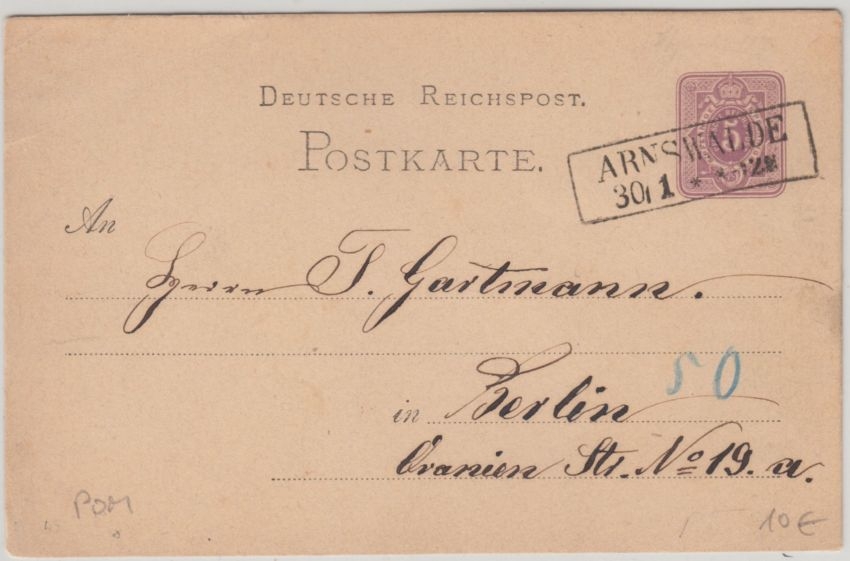 DEUTSCHE REICHSPOST.
POSTKARTE.
5
ARNSWALDE
30 1 * *
An
Herrn T. Gartmann.
50
in Berlin
Oranien Str. No 19. a.
POM
10 €